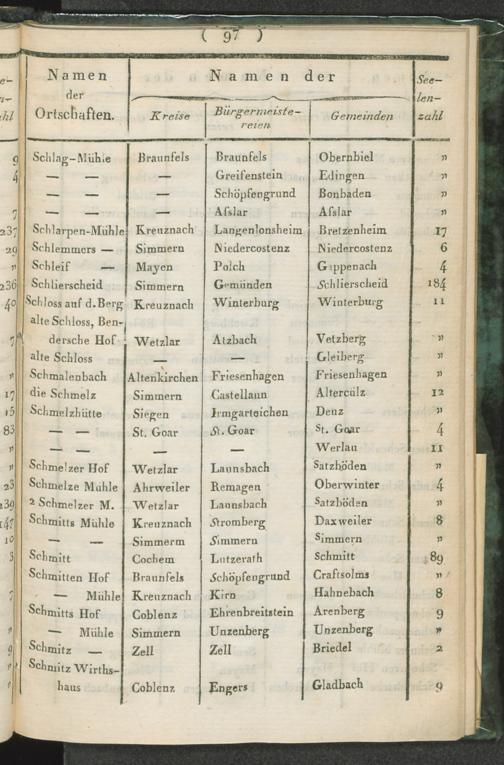 ( 97 )
Namen der Ortschaften. | Namen der | See-len-zahl
Kreise | Bürgermeiste-reien | Gemeinden
9 Schlag-Mühle Braunfels Braunfels Obernbiel „
4 — — — Greifenstein Edingen „
— — — Schöpfengrund Bonbaden „
7 — — — Aſslar Aſslar „
237 Schlarpen-Mühle Kreuznach Langenlonsheim Bretzenheim 17
29 Schlemmers — Simmern Niedercostenz Niedercostenz 6
„ Schleif — Mayen Polch Gappenach 4
236 Schlierscheid Simmern Gemünden Schlierscheid 184
40 Schloss auf d. Berg Kreuznach Winterburg Winterburg 11
alte Schloss, Ben-
7 dersche Hof Wetzlar Atzbach Vetzberg „
alte Schloss — — Gleiberg „
„ Schmalenbach Altenkirchen Friesenhagen Friesenhagen „
17 die Schmelz Simmern Castellaun Altercülz 12
15 Schmelzhütte Siegen Irmgarteichen Deuz „
83 — — St. Goar St. Goar St. Goar 4
„ — — — — Werlau 11
„ Schmelzer Hof Wetzlar Launsbach Satzböden „
23 Schmelze Mühle Ahrweiler Remagen Oberwinter 4
139 2 Schmelzer M. Wetzlar Launsbach Satzböden „
147 Schmitts Mühle Kreuznach Stromberg Daxweiler 8
10 — — Simmerm Simmern Simmern „
3 Schmitt Cochem Lutzerath Schmitt 89
Schmitten Hof Braunfels Schöpfengrund Craftsolms „
7 — Mühle Kreuznach Kirn Hahnebach 8
Schmitts Hof Coblenz Ehrenbreitstein Arenberg 9
„ — Mühle Simmern Unzenberg Unzenberg „
9 Schmitz — Zell Zell Briedel 2
„ Schmitz Wirths-
„ haus Coblenz Engers Gladbach 9